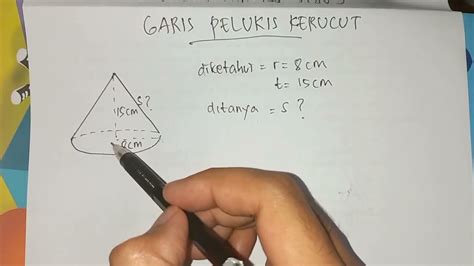 GARIS PELUKIS KERUCUT
diketahui = r = 8cm
t = 15cm
ditanya = S ?
S?
15cm
8cm